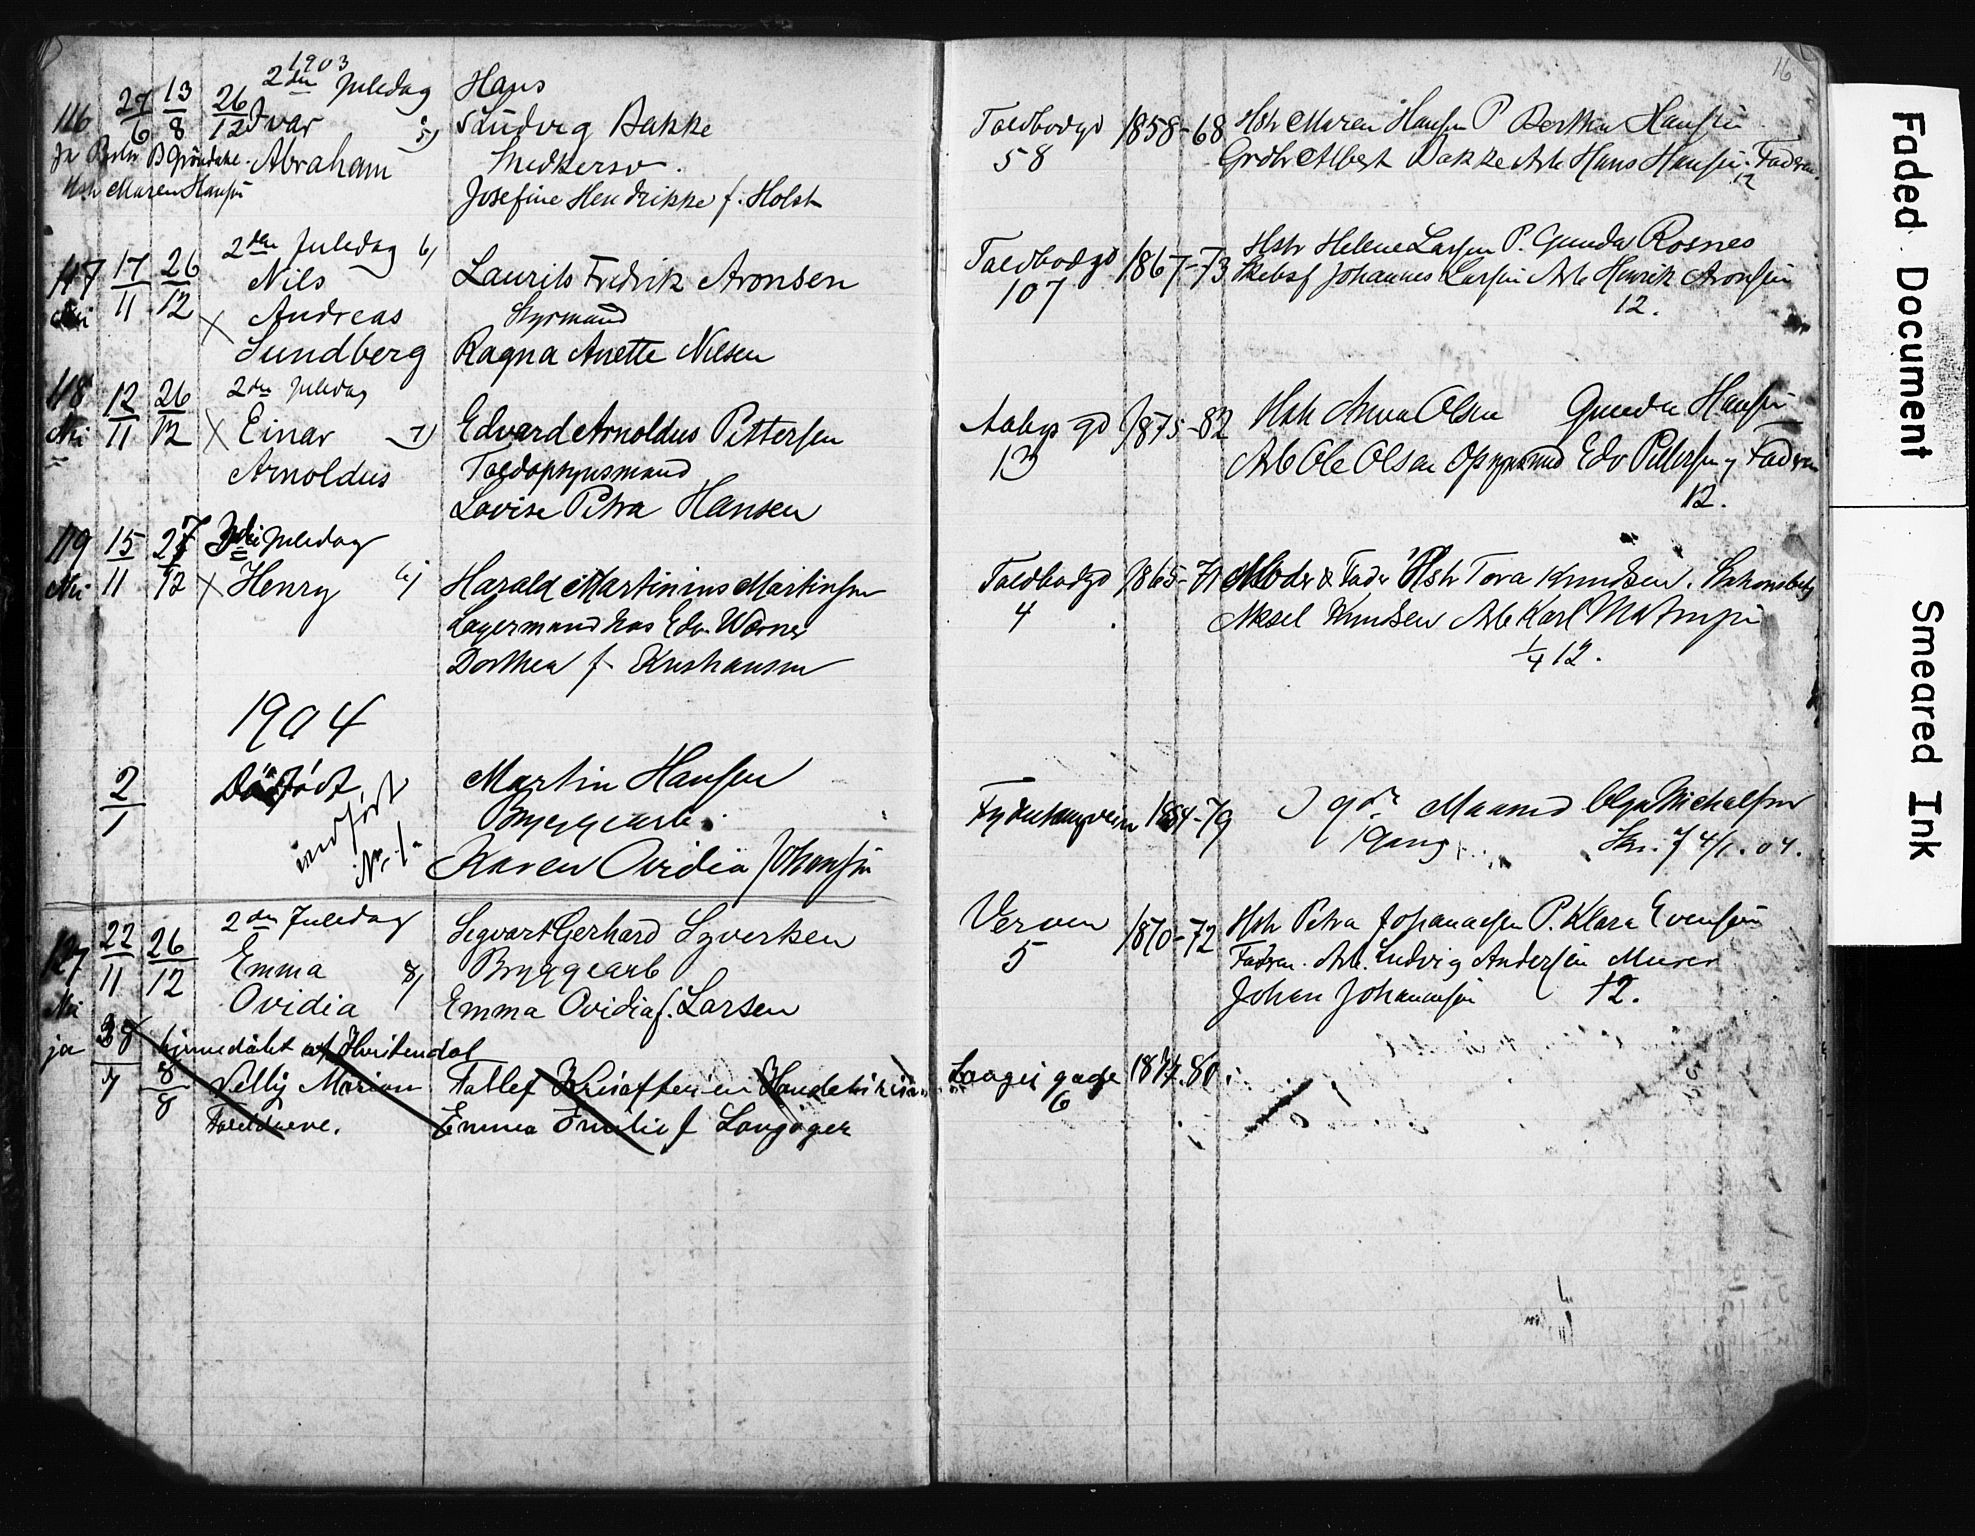 1903
2den Juledag
116 27/6 13/8 26/12 Ivar 5)
Abraham
Ja
Hstr Maren Hansen
Hans
Ludvig Bakke
Snedkersv.
Josefine Hendrikke f. Holst
Toldbodgd 58 1858-68
Hstr Maren Hansen P Berthea Hansen
Grdbr Albert Bakke Arb Hans Hansen. Fadren.
12
2den Juledag 6)
117 17/11 26/12 Nils
Nei Andreas
Sundberg
Laurits Fredrik Aronsen
Styrmand
Ragna Anette Nilsen
Toldbodgd 107 1867-73
Hstr Helene Larsen P. Gunda Rosnes
Skibsf Johannes Larsen Arb Henrik Aronsen
12.
2den Juledag
118 12/11 26/12 Einar 7)
Nei Arnoldus
Edvard Arnoldus Pettersen
Toldopsynsmand
Lovise Petra Hansen
Aabys gd 13 1875-82
Hstr Anna Olsen Gunda Hansen
Arb Ole Olsen Opsynsmd Edv Pettersen Fadren
12.
3die Juledag
119 15/11 27/12 Henry
Nei
Harald Martinius Martinsen
Lagermand hos Edv. Werner
Dorthea f. Kristiansen
Toldbodgd 4 1865-71
Moder & Fader Hstr Tora Knudsen.
Aksel Knudsen Arb Karl
1/4 12.
1904
2/1 Dødfødt
indført
Nr. 1.
Martin Hansen
Bryggearb.
Karen Ovidia Johansen
1854-79
I 9de Maaned Olga Michalsen
1 Gang 4/1. 04.
2den Juledag
127 22/11 26/12 Emma 8)
Nei Ovidia
Sigvart Gerhard Syvertsen
Bryggearb
Emma Ovidia f. Larsen
Verven 5 1870-72
Hstr Petra Johannesen P. Klara Evensen
Fadren. Arb. Ludvig Andersen Murer
Johan Johannesen 12.
ja hjemmedøbt af
7 8/8 Nelly Marian
Tallef
Emma Emilie f Langåger
Langesgade 6 1874.80.
16
Faded Document
Smeared Ink